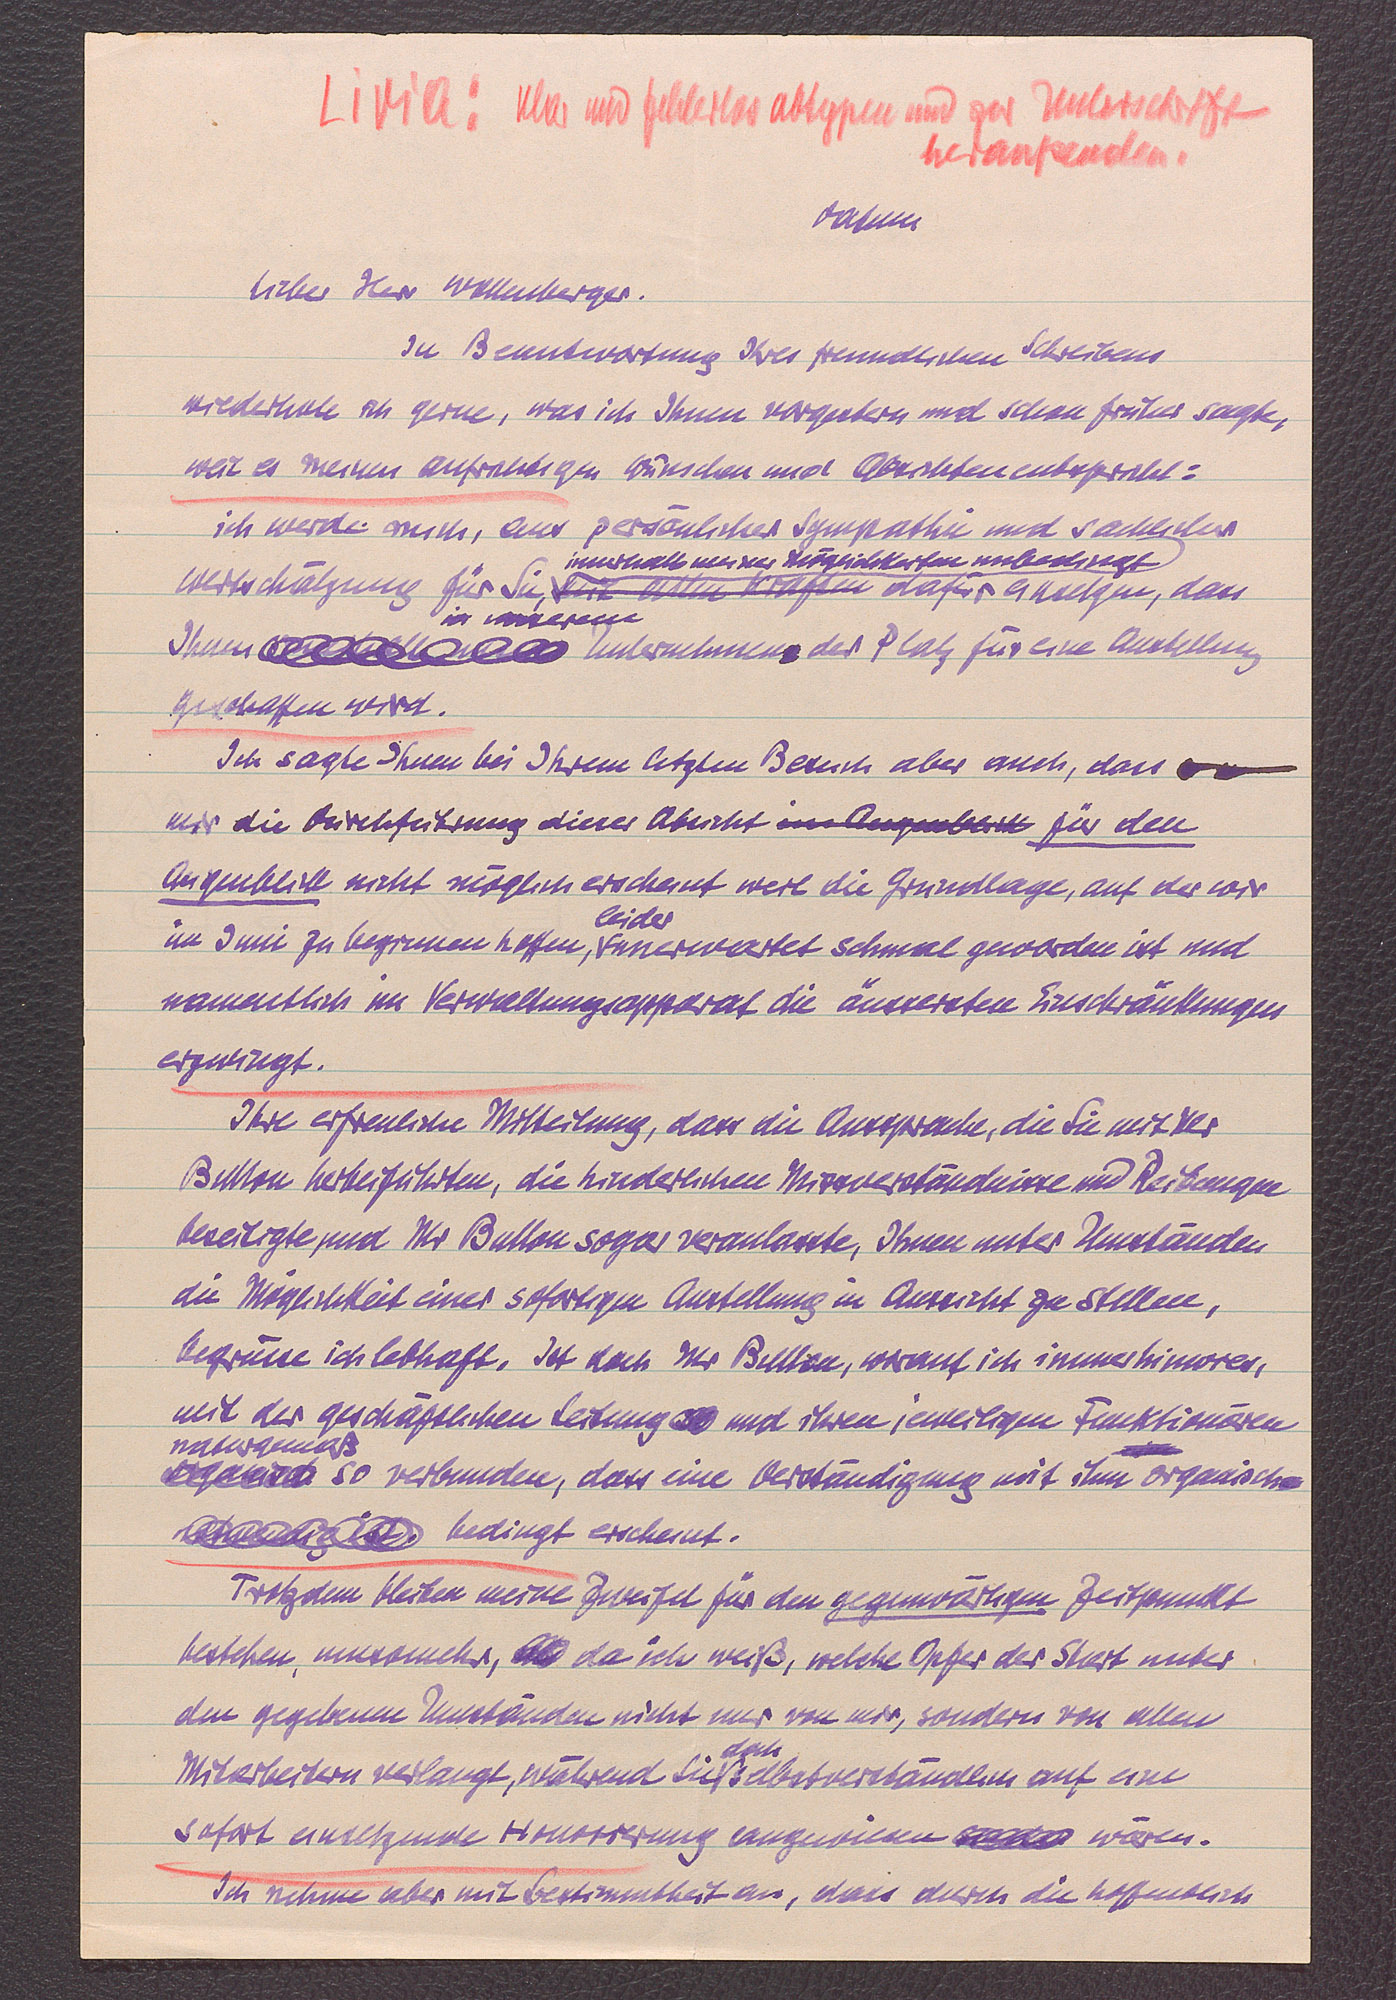 Livia: klar und fehlerlos abtypen und zur Unterschrift
heraufsenden.
Datum
Lieber Herr Wollenberger.
In Beantwortung Ihres freundlichen Schreibens
wiederhole ich gerne, was ich Ihnen vorgestern und schon früher sagte,
weil es meinen aufrichtigen Wünschen und Absichten entspricht:
ich werde mich, aus persönlicher Sympathie und sachlicher
innerhalb meiner Möglichkeiten unbedingt
Wertschätzung für Sie, mit allen Kräften dafür einsetzen, dass
in unserem
Ihnen Unternehmen der Platz für eine Anstellung
geschaffen wird.
Ich sagte Ihnen bei Ihrem letzten Besuch aber auch, dass
mir die Durchführung dieser Absicht im Augenblick für den
Augenblick nicht möglich erscheint weil die Grundlage, auf der wir
leider
im Juni zu beginnen hoffen, unerwartet schmal geworden ist und
namentlich im Verwaltungsapparat die äussersten Einschränkungen
erzwingt.
Ihre erfreuliche Mitteilung, dass die Aussprache, die Sie mit Mr
Button herbeiführten, die hinderlichen Missverständnisse und Reibungen
beseitigte und Mr Button sogar veranlasste, Ihnen unter Umständen
die Möglichkeit einer sofortigen Anstellung in Aussicht zu stellen,
begrüsse ich lebhaft. Ist doch Mr Button, worauf ich immer hinwies,
mit der geschäftlichen Leitung und ihren jeweiligen Funktionären
naturgemäß
so verbunden, dass eine Verständigung mit ihm organisch
notwendig ist. bedingt erscheint.
Trotzdem bleiben meine Zweifel für den gegenwärtigen Zeitpunkt
bestehen, umsomehr, da ich weiß, welche Opfer der Start unter
den gegebenen Umständen nicht nur von mir, sondern von allen
doch
Mitarbeitern verlangt, während Sie selbstverständlich auf eine
sofort einsetzende Honorierung angewiesen wären.
Ich nehme aber mit Bestimmtheit an, dass durch die hoffentlich